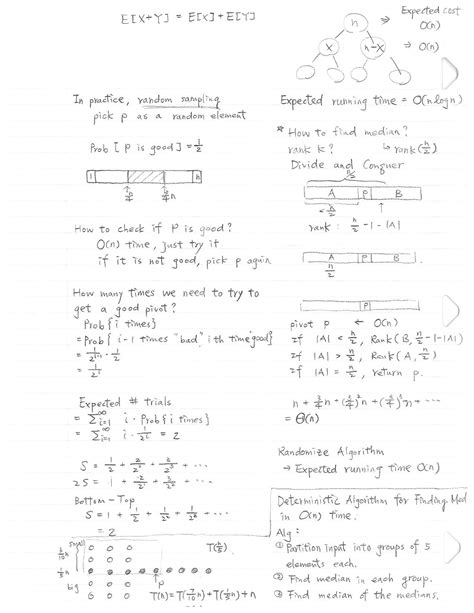 E[X+Y] = E[X] + E[Y]
In practice, random sampling
pick p as a random element
Prob [ p is good ] = 1/2
1
n/4
3/4 n
n
How to check if P is good?
O(n) time, just try it
if it is not good, pick p again
How many times we need to try to
get a good pivot?
Prob{ i times}
= Prob{ i-1 times "bad", i th time good}
= 1/2^(i-1) · 1/2
= 1/2^i
Expected # trials
= Σ_(i=1)^∞ i · Prob{ i times}
= Σ_(i=1)^∞ i · 1/2^i = 2
S = 1/2 + 2/2^2 + 3/2^3 + ...
2S = 1 + 2/2 + 3/2^2 + ...
Bottom - Top
S = 1 + 1/2 + 1/2^2 + 1/2^3 + ...
= 2
small
3/10 n
1/5 n
big
T(n/5)
P
T(n) = T(7/10 n) + T(1/5 n) + n
n
x
n-x
Expected cost
O(n)
→ O(n)
Expected running time = O(n log n)
* How to find median?
rank k?
↳ rank(n/2)
Divide and Conquer
n/2
A P B
< n/2
rank : n/2 - 1 - |A|
A P B
n/2
P
pivot p ← O(n)
If |A| < n/2, Rank(B, n/2 - 1 - |A|)
If |A| > n/2, Rank(A, n/2)
If |A| = n/2, return p.
n + 3/4 n + (3/4)^2 n + (3/4)^3 n + ...
= Θ(n)
Randomize Algorithm
→ Expected running time O(n)
Deterministic Algorithm for Finding Med
in O(n) time.
Alg :
① Partition input into groups of 5
elements each.
② Find median in each group.
③ Find median of the medians.